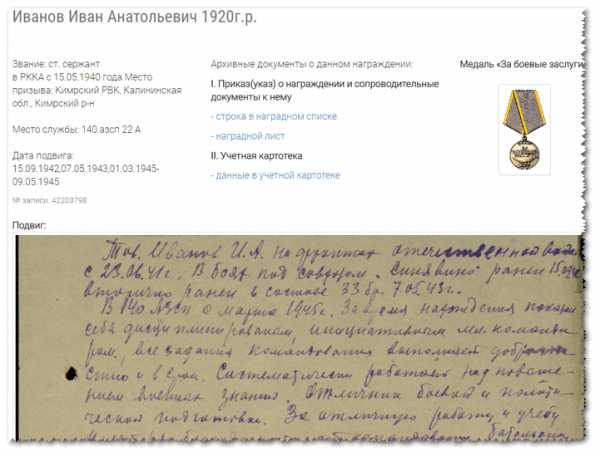 Иванов Иван Анатольевич 1920г.р.
Звание: ст. сержант
в РККА с 15.05.1940 года Место
призыва: Кимрский РВК, Калининская
обл., Кимрский р-н
Место службы: 140 азсп 22 А
Дата подвига:
15.09.1942,07.05.1943,01.03.1945-
09.05.1945
№ записи: 42209798
Архивные документы о данном награждении:
I. Приказ(указ) о награждении и сопроводительные
документы к нему
- строка в наградном списке
- наградной лист
II. Учетная картотека
- данные в учетной картотеке
Медаль «За боевые заслуги
Подвиг:
Тов. Иванов И.А. на фронтах отечественной
с 23.06.41г. В боях под совхозом „Синявино" ранен
вторично ранен в составе 33 бр. 7.05.43г.
В 140 АЗСП с марта 1945г. За время нахождения
себя дисциплинированым, инициативным мл. команди-
ром, все задания командования выполняет
стно и в срок. Систематически работает над повыше-
нием военных знаний. Отличник боевой и полити-
ческой подготовки. За отличную работу и учебу